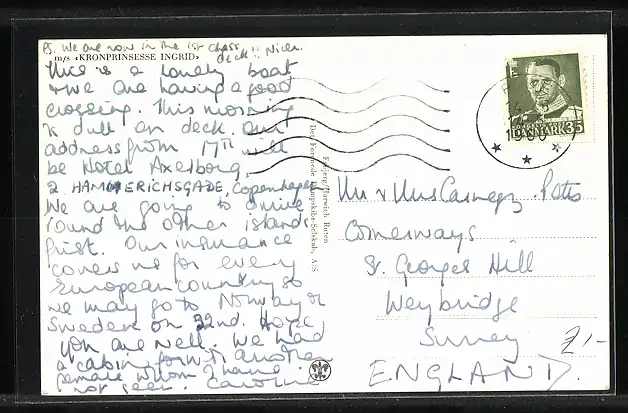 Ps. We are now in the 1st class
deck!! Nicer.
m/s «KRONPRINSESSE INGRID»
This is a lovely boat
& we are having a good
crossing. This morning
is dull on deck. Our
address from 17th will
be Hotel Axelborg,
2 HAMMERICHSGADE, Copenhagen
We are going to drive
round the other islands
first. Our insurance
covers us for every
European country so
we may go to Norway or
Sweden on 22nd. Hope
you are well. We had
a cabin for with another
female whom I have
not seen. Caroline
Esbjerg/Harwich Ruten
Det Forenede Dampskibs-Selskab, A/S
DANMARK 35
Mr & Mrs Carnegy Potts
Comerways
St. Georges Hill
Weybridge
Surrey
ENGLAND.
£1-